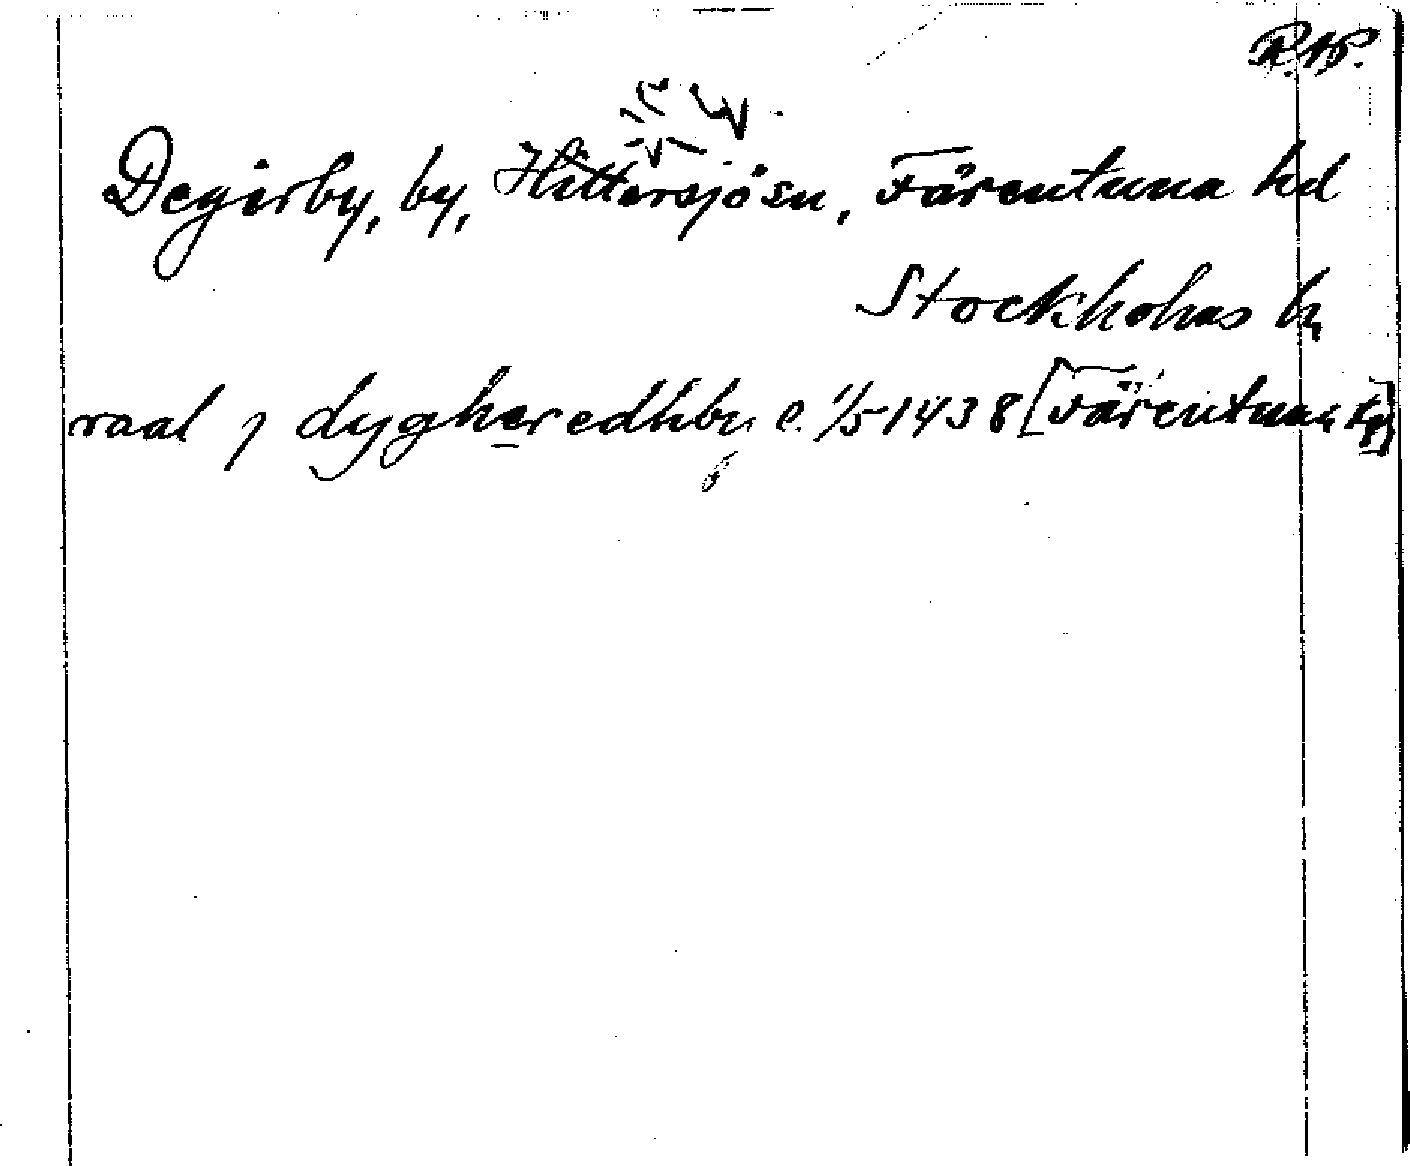 R.AP.
Degerby, by, Hillersjö sn, Färentuna hd
Stockholms ln
raal j dygheredhby e. 1/5 1438 [Färentuna tg]